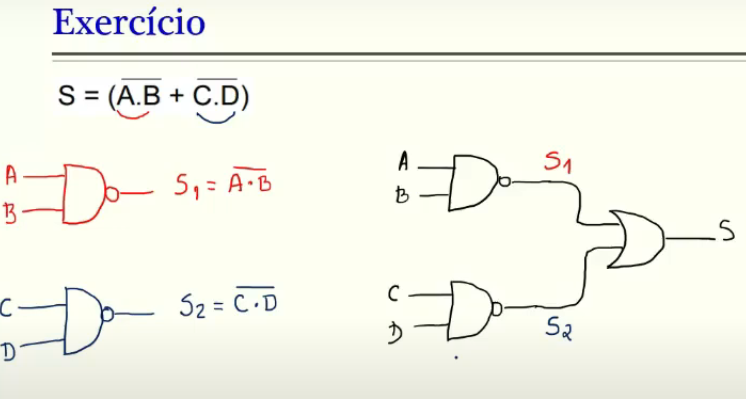 Exercício
S = (A̅.̅B̅ + C̅.̅D̅)
A
B
S₁ = A̅·̅B̅
C
D
S₂ = C̅·̅D̅
A
B
S1
S
C
D
S₂